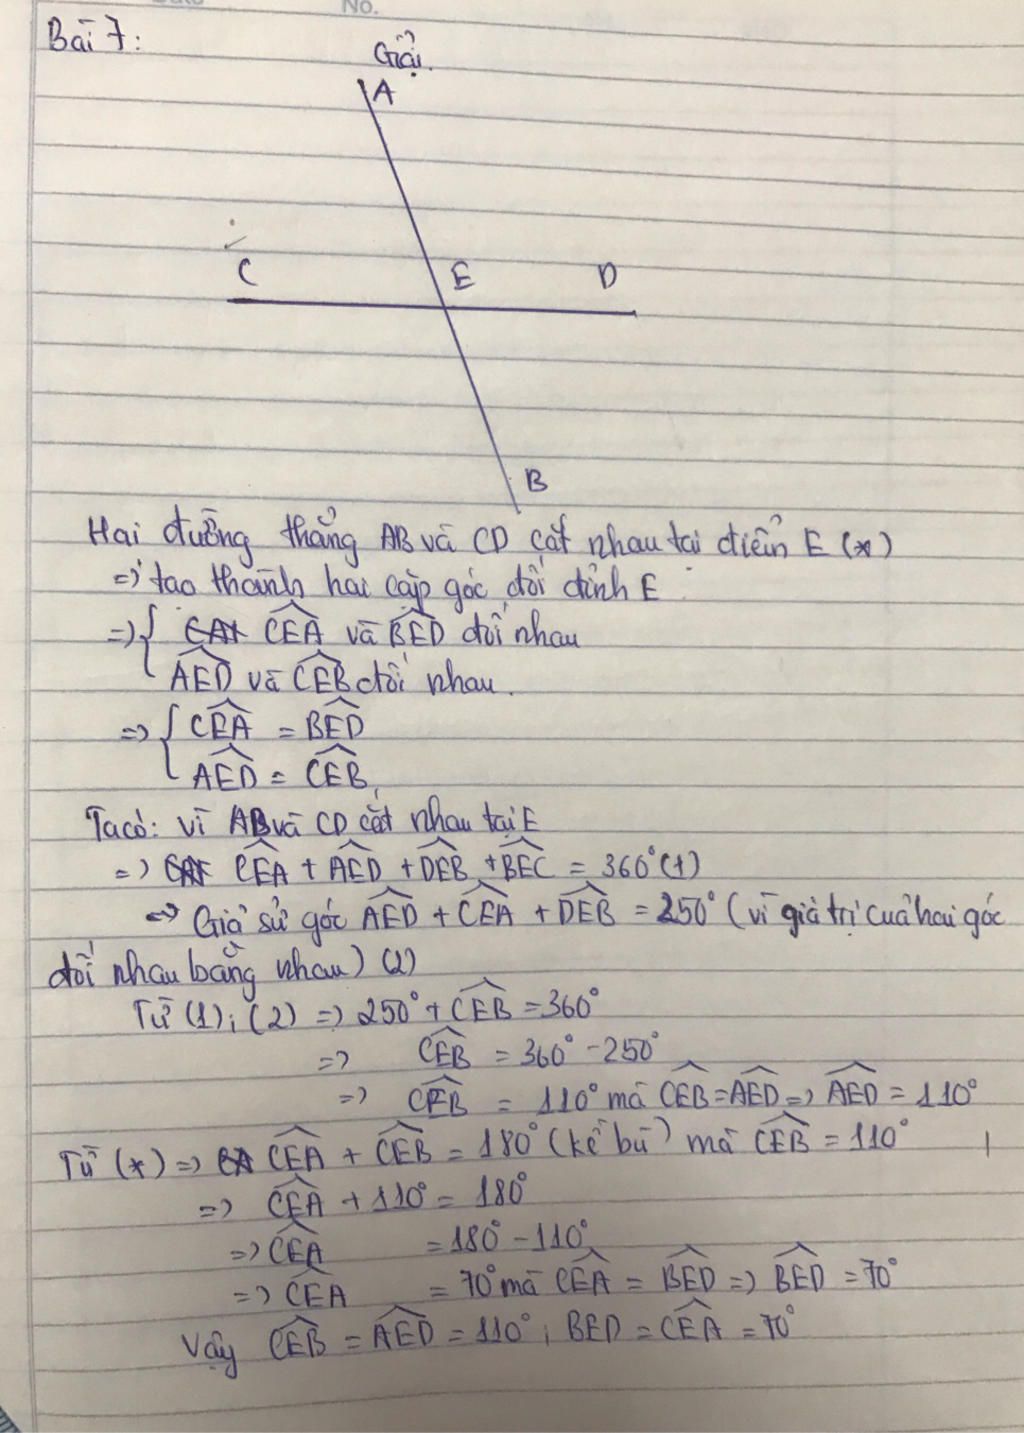 No.
Bài 7:
Giải.
A
C
E
D
B
Hai đường thẳng AB và CD cắt nhau tại điểm E (*)
=> tạo thành hai cặp góc đối đỉnh E
=> { CEA và BED đối nhau
AED và CEB đối nhau.
=> { CEA = BED
AED = CEB
Ta có: vì AB và CD cắt nhau tại E
=> CEA + AED + DEB + BEC = 360° (1)
=> Giả sử góc AED + CEA + DEB = 250° (vì giá trị của hai góc
đối nhau bằng nhau) (2)
Từ (1); (2) => 250° + CEB = 360°
=> CEB = 360° - 250°
=> CEB = 110° mà CEB = AED => AED = 110°
Từ (*) => CEA + CEB = 180° (kề bù) mà CEB = 110°
=> CEA + 110° = 180°
=> CEA = 180° - 110°
=> CEA = 70° mà CEA = BED => BED = 70°
Vậy CEB = AED = 110°; BED = CEA = 70°